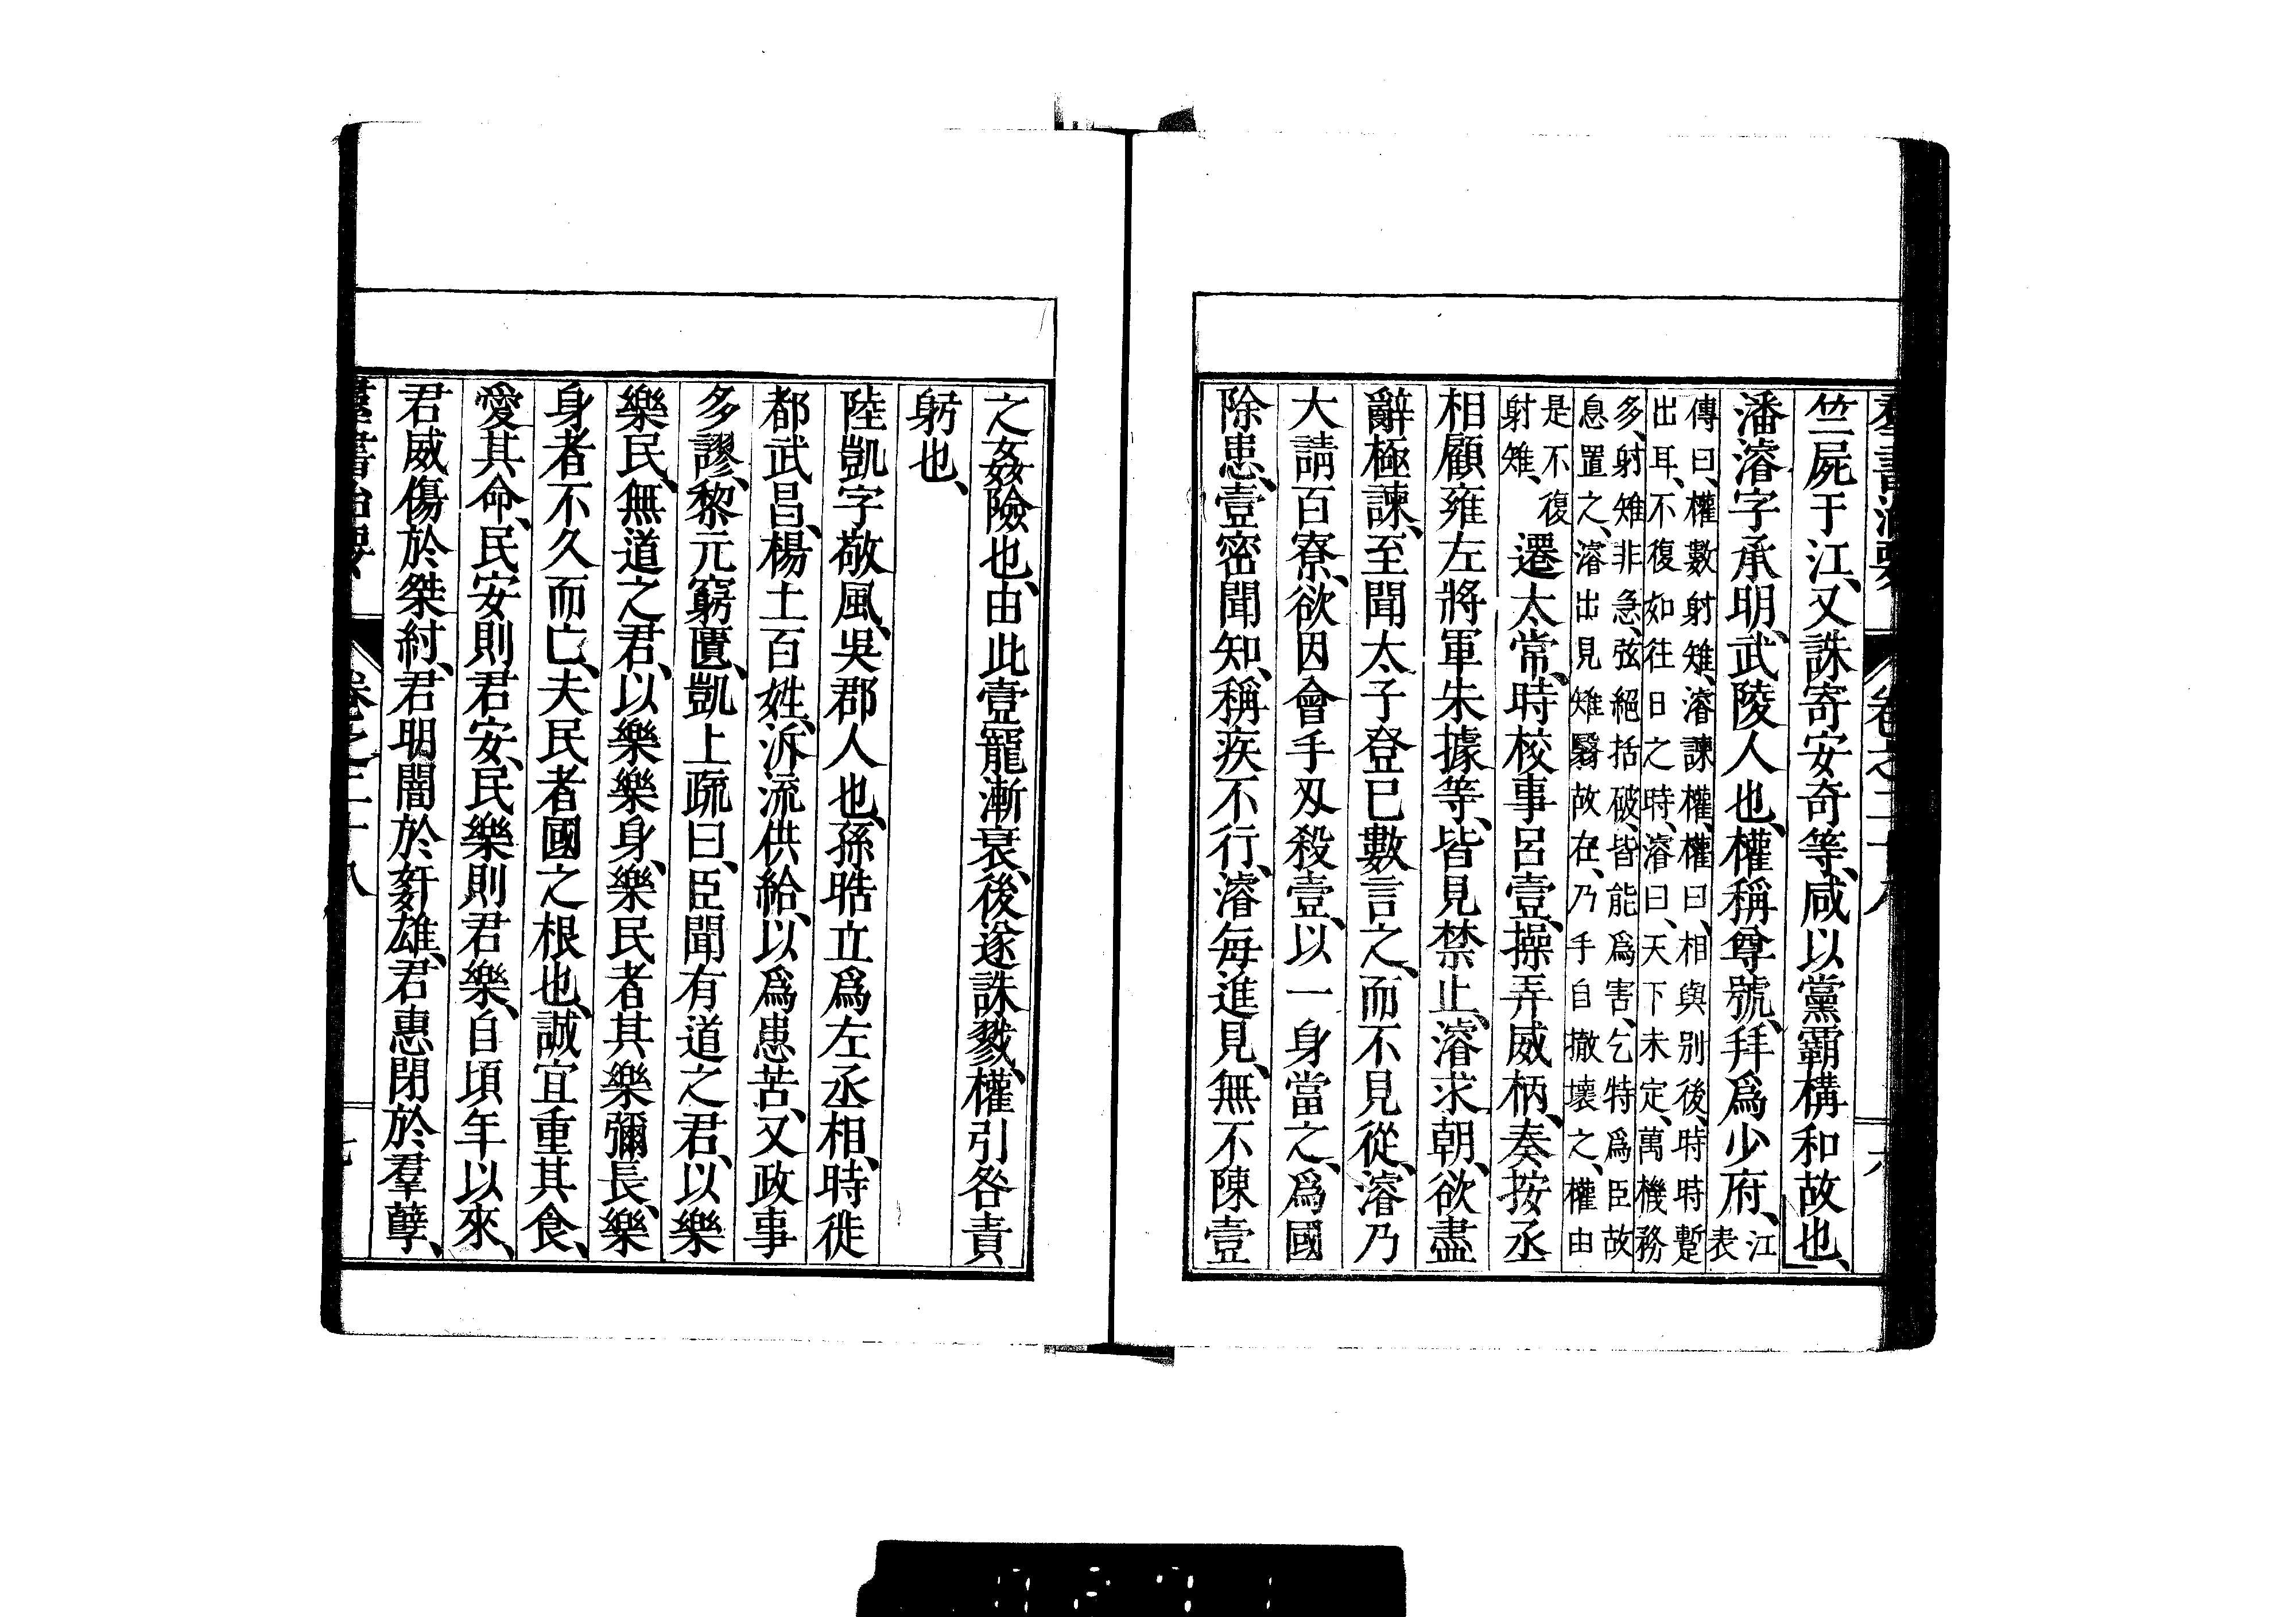 羣書治要 卷之二十八 六
竺屍于江、又誅寄安奇等、咸以黨霸構和故也、
潘濬字承明、武陵人也、權稱尊號、拜爲少府、江表
傳曰、權數射雉、濬諫權、權曰、相與別後、時時蹔
出耳、不復如往日之時、濬曰、天下未定、萬機務
多、射雉非急、弦絕括破、皆能爲害、乞特爲臣故
息置之、濬出見雉翳故在、乃手自撤壞之、權由
是不復
射雉、
遷太常、時校事呂壹、操弄威柄、奏按丞
相顧雍左將軍朱據等、皆見禁止、濬求朝、欲盡
辭極諫、至聞太子登已數言之、而不見從、濬乃
大請百寮、欲因會手刄殺壹、以一身當之、爲國
除患、壹密聞知、稱疾不行、濬每進見、無不陳壹
之姦險也、由此壹寵漸衰、後遂誅戮、權引咎責
躬也、
陸凱字敬風、吳郡人也、孫晧立爲左丞相、時徙
都武昌、楊土百姓、泝流供給、以爲患苦、又政事
多謬、黎元窮匱、凱上疏曰、臣聞有道之君、以樂
樂民、無道之君、以樂樂身、樂民者其樂彌長、樂
身者不久而亡、夫民者國之根也、誠宜重其食、
愛其命、民安則君安、民樂則君樂、自頃年以來、
君威傷於桀紂、君明闇於姧雄、君惠閉於羣孽、
羣書治要 卷之二十八 七